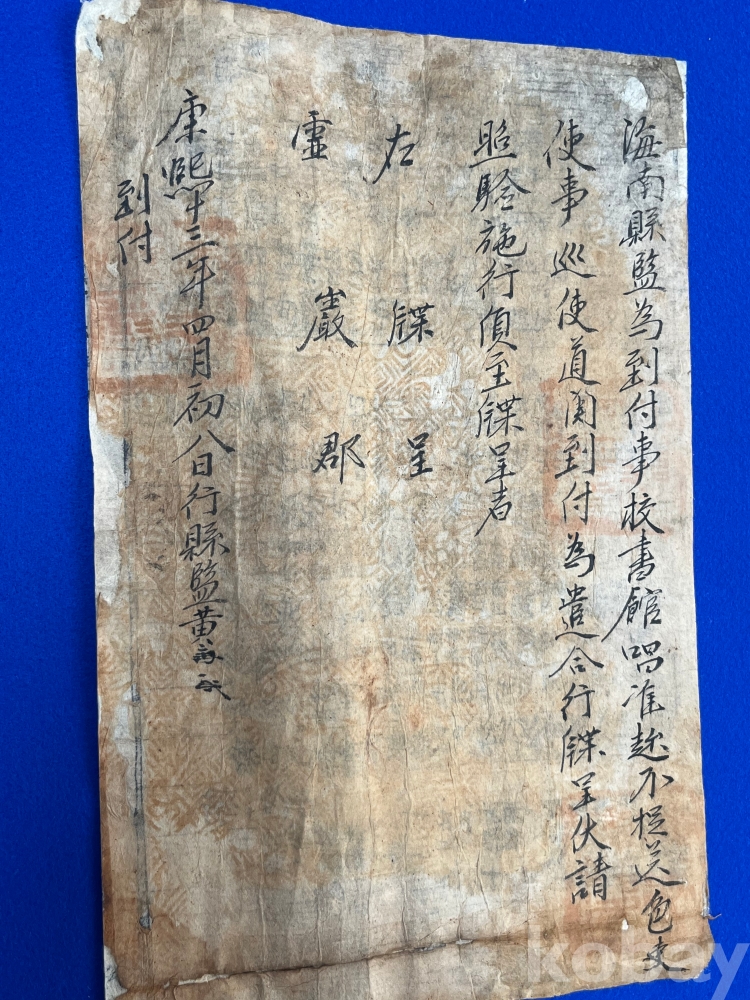 海南縣監為到付事校書館唱准赴不捉送色吏
使事巡使道関到付為遣合行牒呈伏請
照驗施行須至牒呈者
右牒呈
靈巖郡
康熙十三年四月初八日行縣監黃
到付
kobay